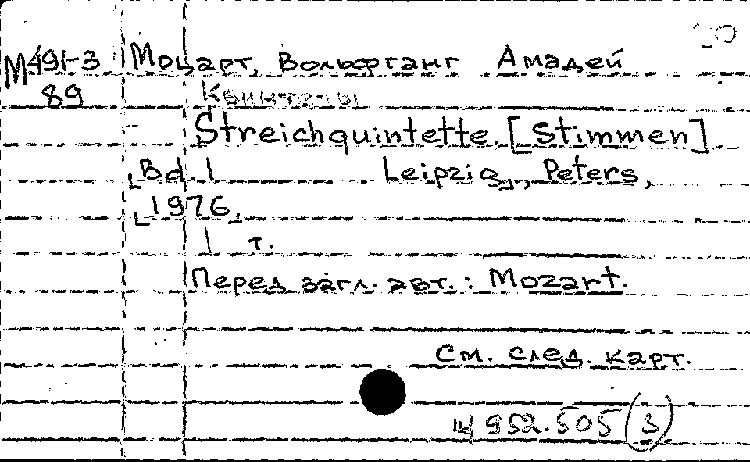 М491-3 Моцарт, Вольфганг Амадей
89 Квинтеты
Streichquintette. [Stimmen]
Bd. 1 Leipzig, Peters,
[1976]
1 т.
Перед загл. авт.: Mozart.
См. след. карт.
952.505 (3)